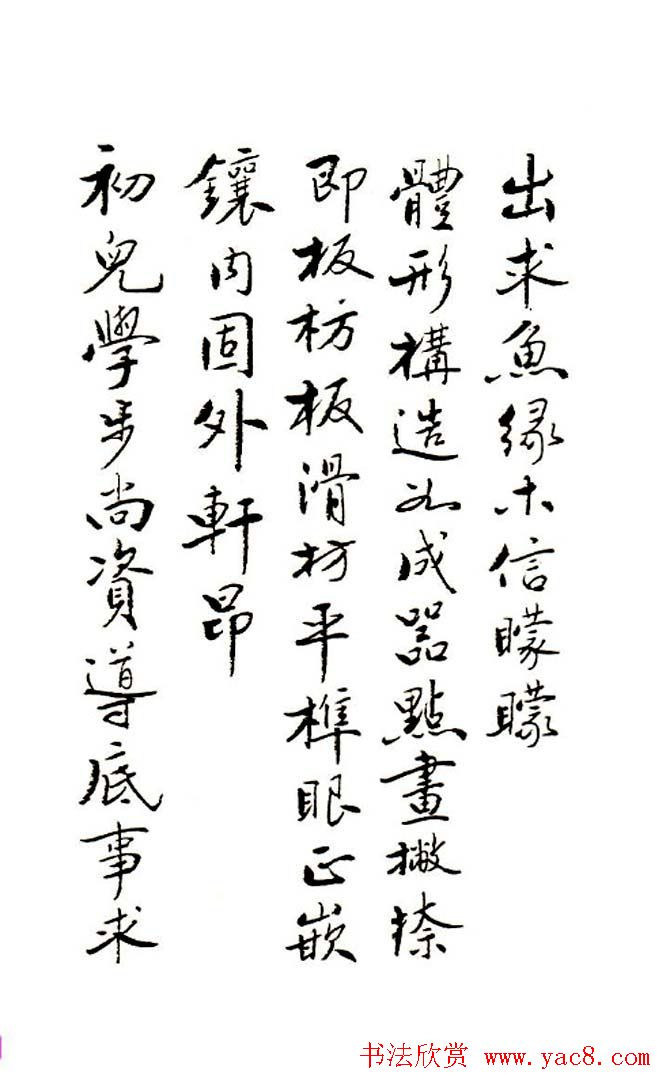 出求魚緣木信矇矇
體形構造如成器點畫撇捺
即板枋板滑枋平榫眼正嵌
鑲內固外軒昂
初兒學步尚資導底事求
书法欣赏 www.yac8.com